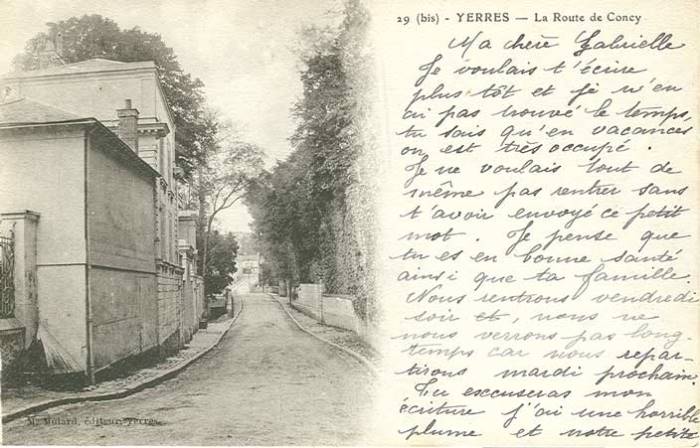 29 (bis) - YERRES — La Route de Concy
Ma chère Gabrielle
Je voulais t'écrire
plus tôt et je n'en
ai pas trouvé le temps,
tu sais qu'en vacances
on est très occupé.
Je ne voulais tout de
même pas rentrer sans
t'avoir envoyé ce petit
mot. Je pense que
tu es en bonne santé
ainsi que ta famille.
Nous rentrons vendredi
soir et, nous ne
nous verrons pas long-
temps car nous repar-
tirons mardi prochain
Tu excuseras mon
écriture j'ai une horrible
plume et notre petite
Mulard, éditeur, Yerres